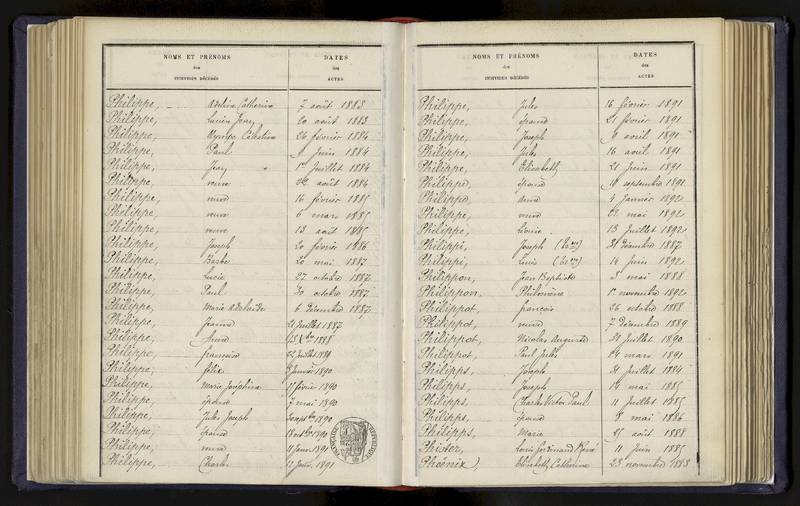 NOMS ET PRÉNOMS
des
INDIVIDUS DÉCÉDÉS
DATES
des
ACTES
Philippe, Adeline Catherine 7 août 1883
Philippe, Lucien Jean 20 août 1883
Philippe, Nymphe Célestine 26 février 1884
Philippe, Paul 9 Juin 1884
Philippe, Jean 1er Juillet 1884
Philippe, veuve août 1884
Philippe, veuve 16 février 1885
Philippe, veuve 6 mars 1885
Philippe, veuve 13 août 1885
Philippe, Joseph 20 février 1886
Philippe, Barbe 20 mai 1887
Philippe, Lucie 27 octobre 1887
Philippe, Paul 30 octobre 1887
Philippe, Marie Adelaïde 6 décembre 1887
Philippe, Jeanne 21 Juillet 1887
Philippe, 1888
Philippe, françoise 22 Juillet 1889
Philippe, félix Janvier 1890
Philippe, Marie Joséphine 17 février 1890
Philippe, épouse mai 1890
Philippe, Jules Joseph 1890
Philippe, épouse 18 1890
Philippe, veuve 11 Janv. 1891
Philippe, Charles 12 Janv. 1891
NOMS ET PRÉNOMS
des
INDIVIDUS DÉCÉDÉS
DATES
des
ACTES
Philippe, Jules 16 février 1891
Philippe, épouse 21 février 1891
Philippe, Joseph 9 avril 1891
Philippe, Jules 16 avril 1891
Philippe, Elisabeth 21 Juin 1891
Philippe, épouse 10 septembre 1891
Philippe, 4 Janvier 1892
Philippe, veuve mai 1892
Philippe, Léonie 13 Juillet 1892
Philippi, Joseph 31 décembre 1887
Philippi, Louis 14 Juin 1892
Philippon, Jean Baptiste 3 mai 1888
Philippon, Philomène 1er novembre 1892
Philippot, françois 26 octobre 1888
Philippot, veuve 7 décembre 1889
Philippot, Nicolas Auguste 31 Juillet 1890
Philippot, Paul Jules 14 mars 1891
Philipps, Joseph 31 Juillet 1884
Philipps, Joseph 12 mai 1885
Philipps, Charles Victor Paul 11 Juillet 1885
Philipps, épouse 8 mai 1886
Philipps, Marie 25 août 1888
Phister, Louis ferdinand René 11 Juin 1885
Phoenix, Elisabeth Catherine 23 novembre 1883